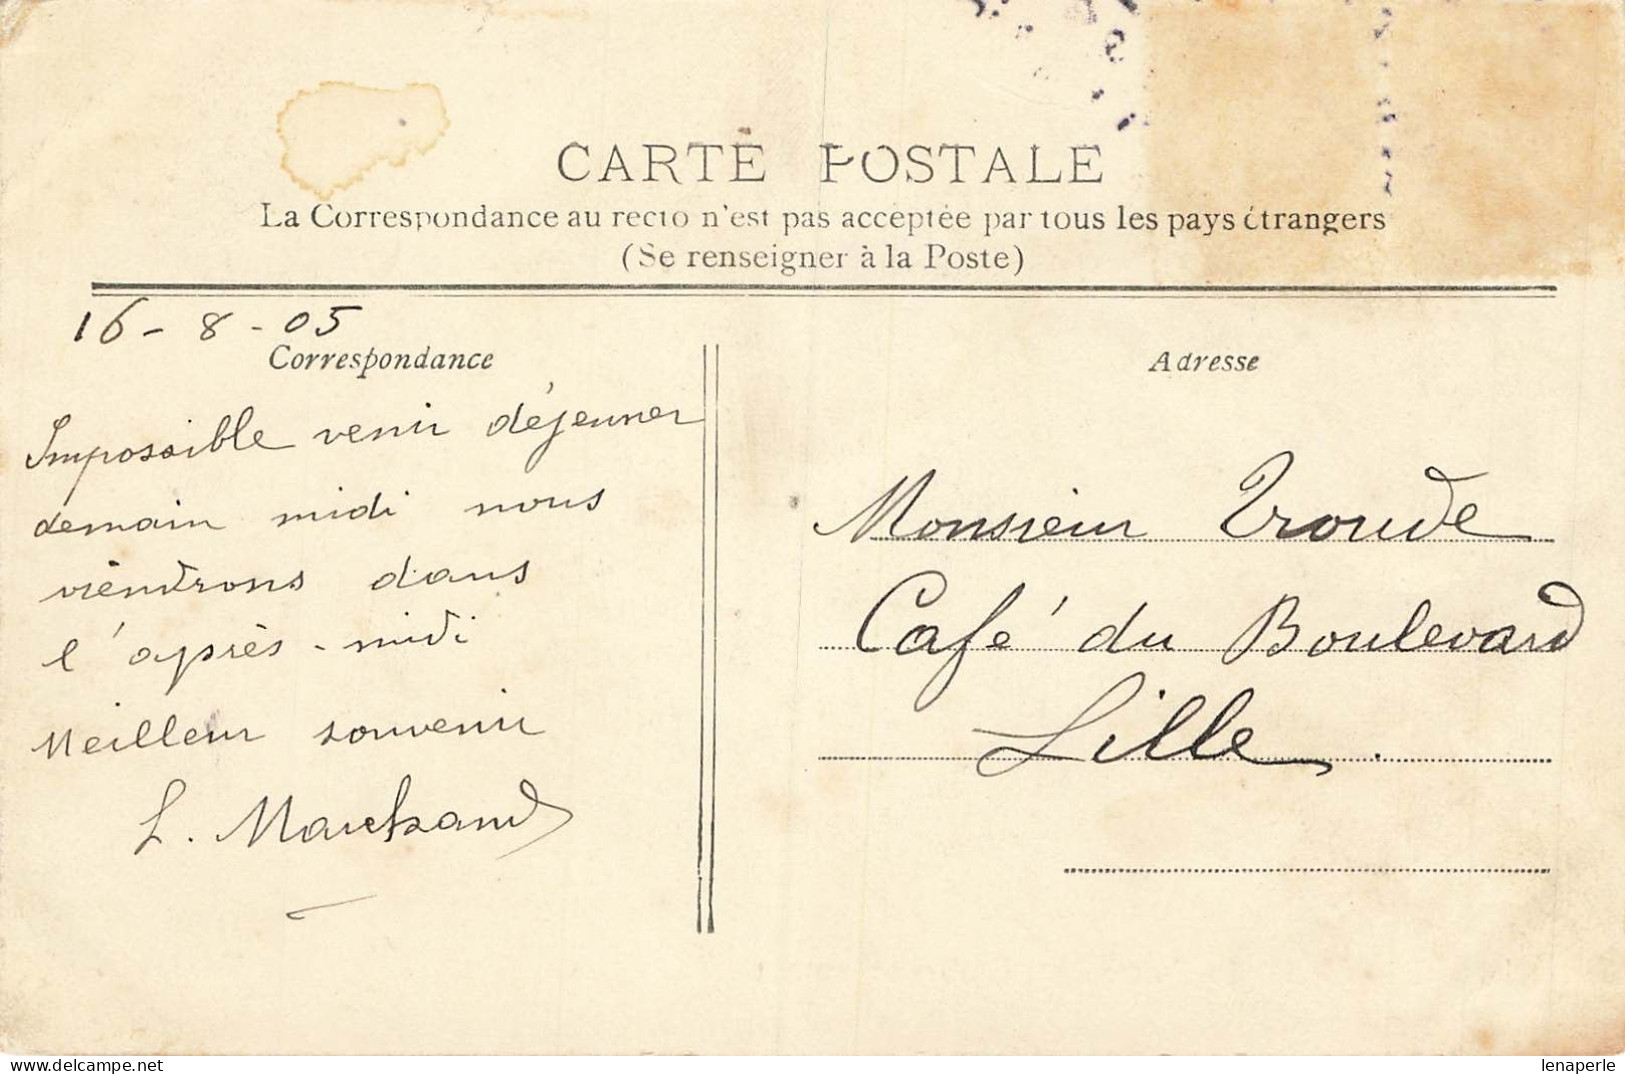 CARTE POSTALE
La Correspondance au recto n'est pas acceptée par tous les pays étrangers
(Se renseigner à la Poste)
16-8-05
Correspondance
Impossible venir déjeuner
demain midi nous
viendrons dans
l'après-midi
Meilleur souvenir
L. Marchand
Adresse
Monsieur Troude
Café du Boulevard
Lille.
delcampe.net
lenaperle